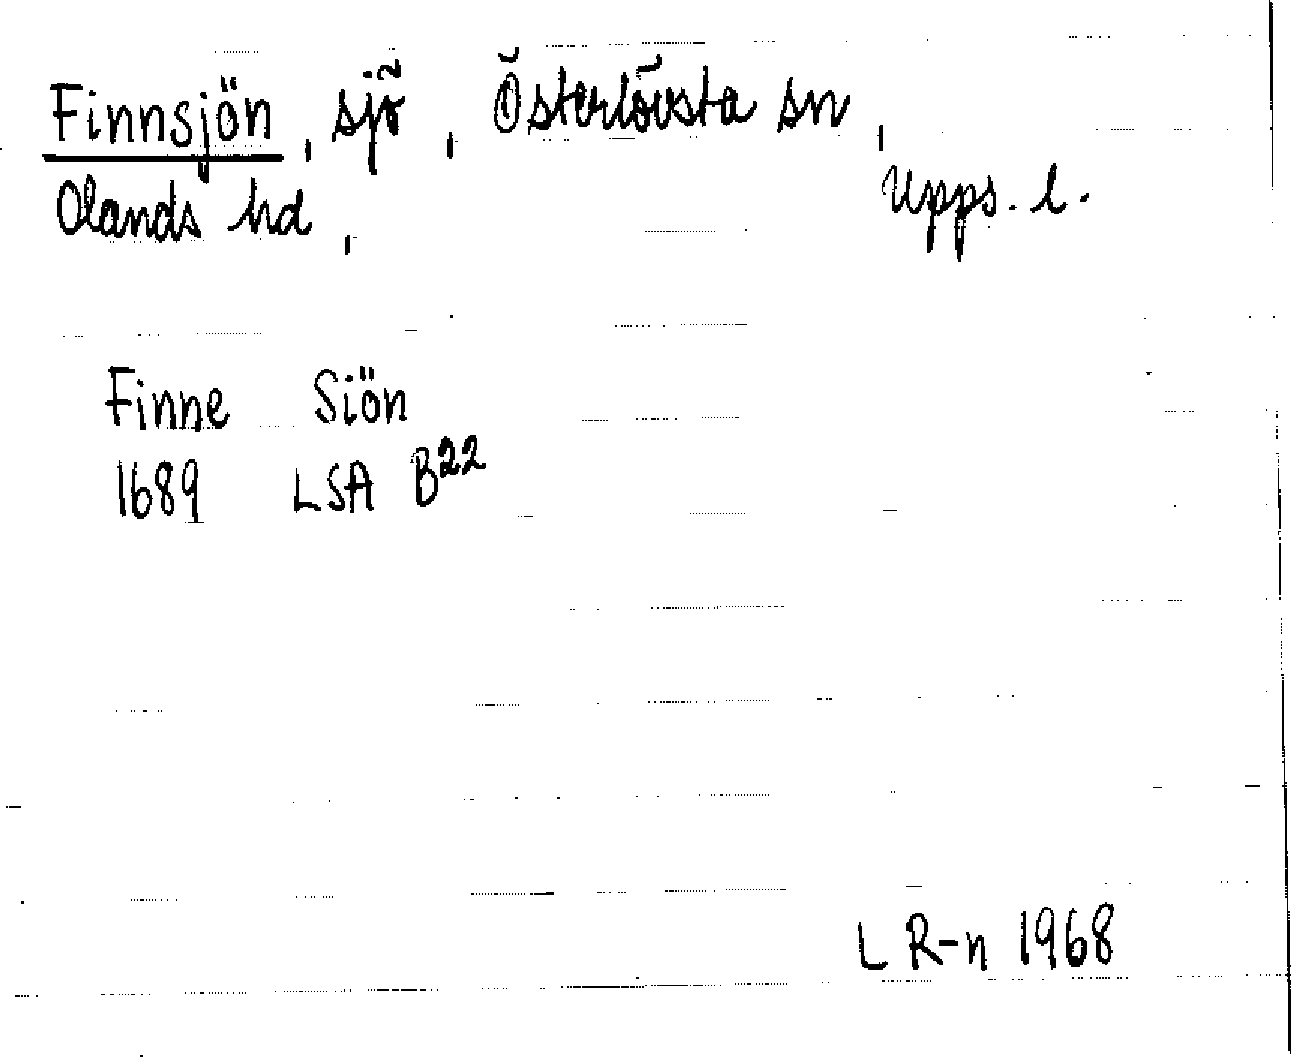 Finnsjön, sjö, Österlövsta sn,
Olands hd, Upps. l.
Finne Siön
1689 LSA B22
L R-n 1968